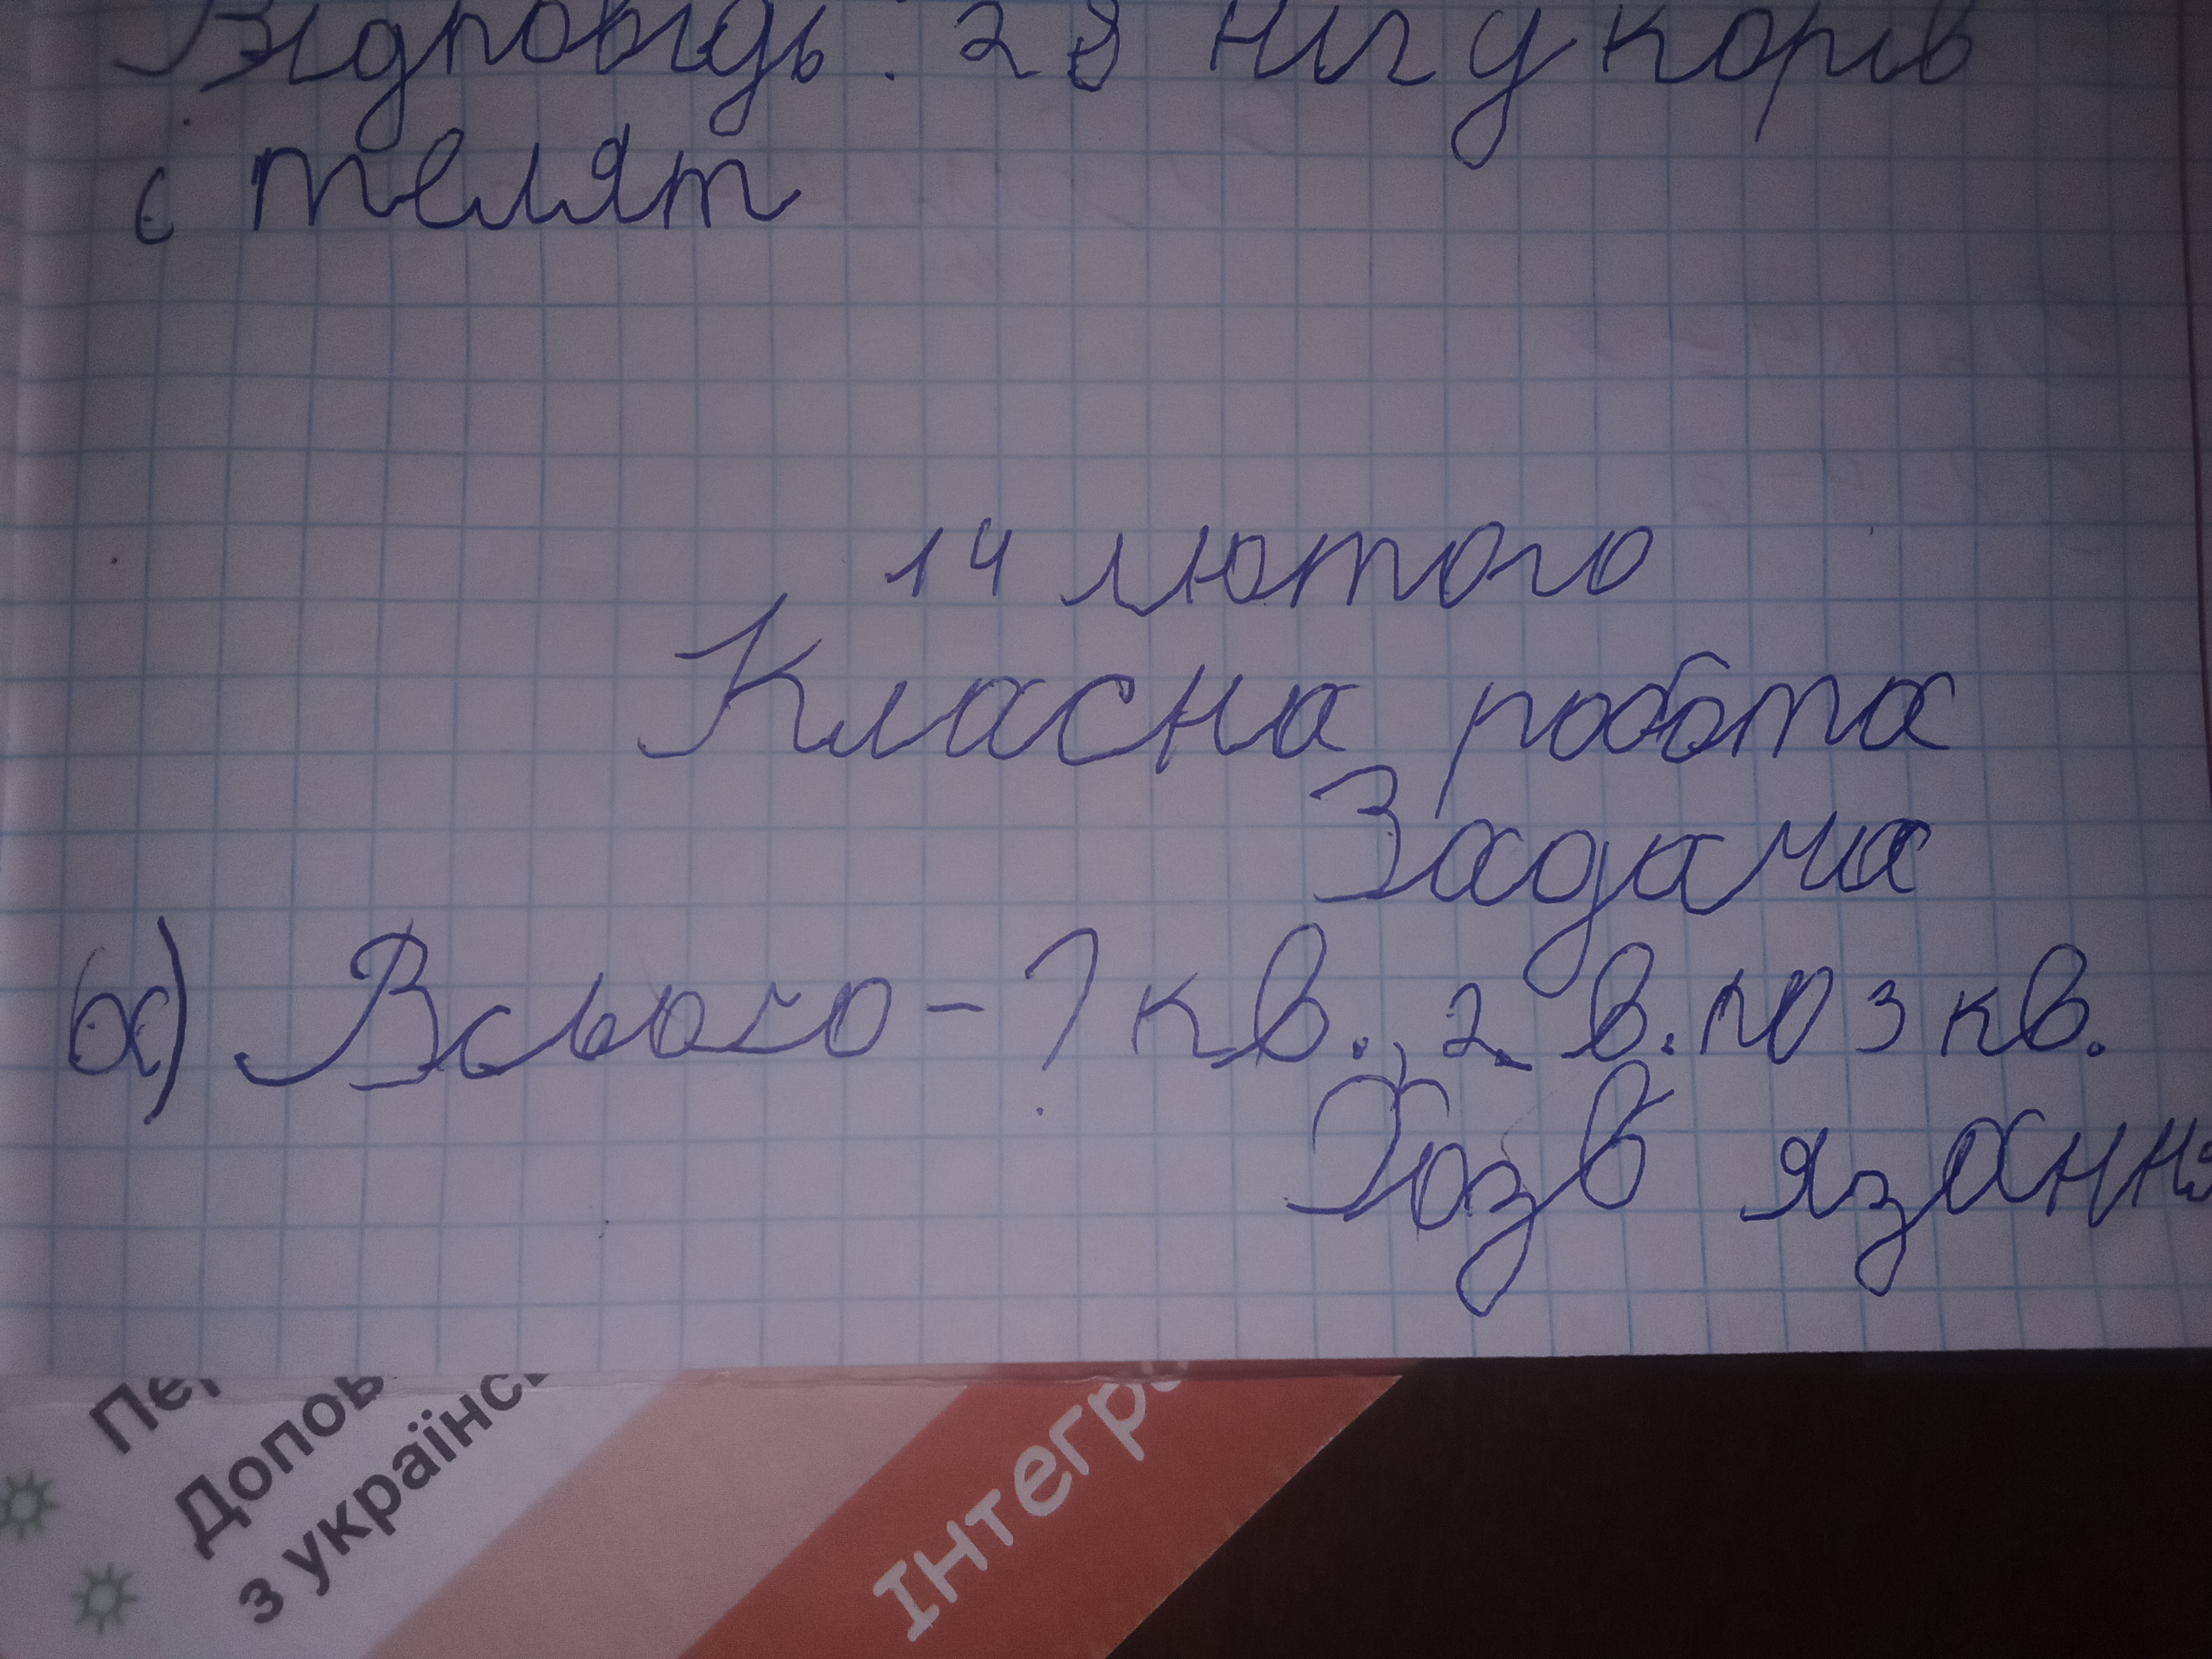 Відповідь: 28 ніг у корів
і телят
14 лютого
Класна робота
Задача
а) Всього - ? кв., 2 в. по 3 кв.
Розв язання
Допов
з українс
Інтегра